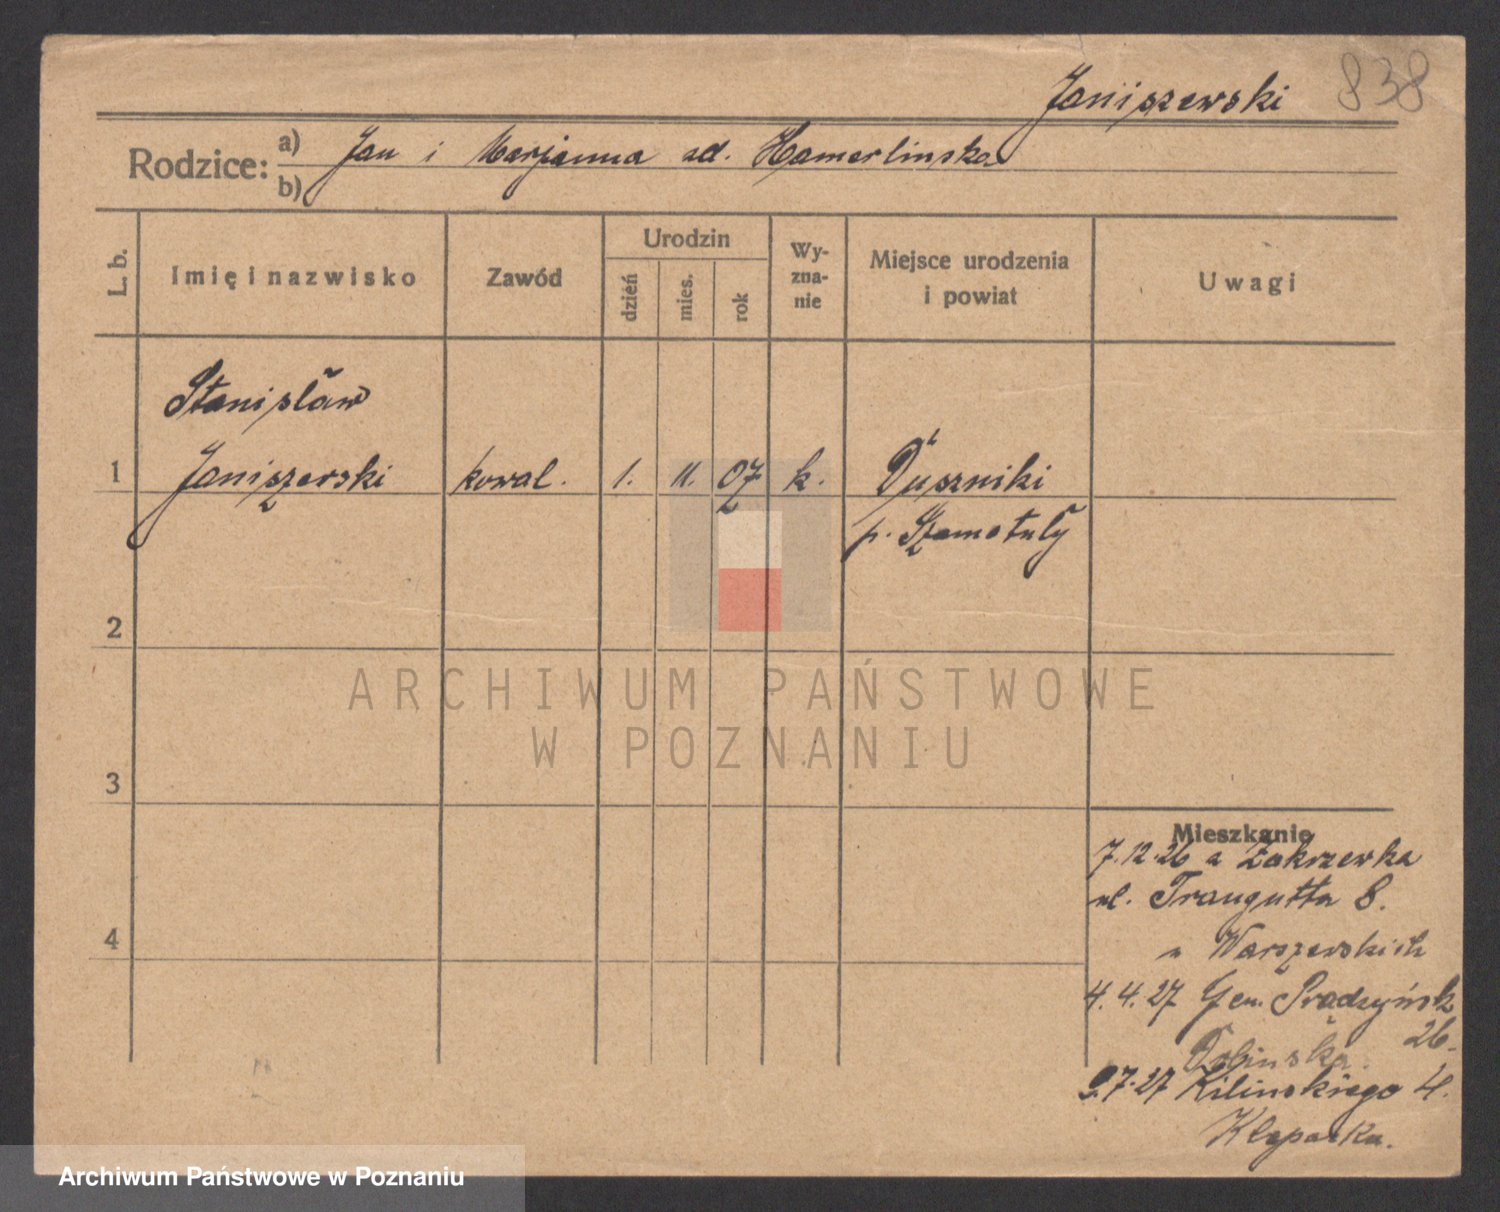 Janiszewski 838
Rodzice: a) Jan i Marjanna zd. Hamerlinska
b)
L. b. Imię i nazwisko Zawód Urodzin dzień mies. rok Wy-zna-nie Miejsce urodzenia i powiat Uwagi
Stanisław
1 Janiszewski kowal. 1. 11. 07 k. Duszniki
p. Szamotuły
2
ARCHIWUM PAŃSTWOWE
W POZNANIU
3
Mieszkanie
7.12.26 z Zakrzewka
ul. Traugutta 8.
u Warszewskich
4
4.4.27 Gen. Prądzyńsk
26.
Dolinska
9.7.27 Kilinskiego 4.
Archiwum Państwowe w Poznaniu